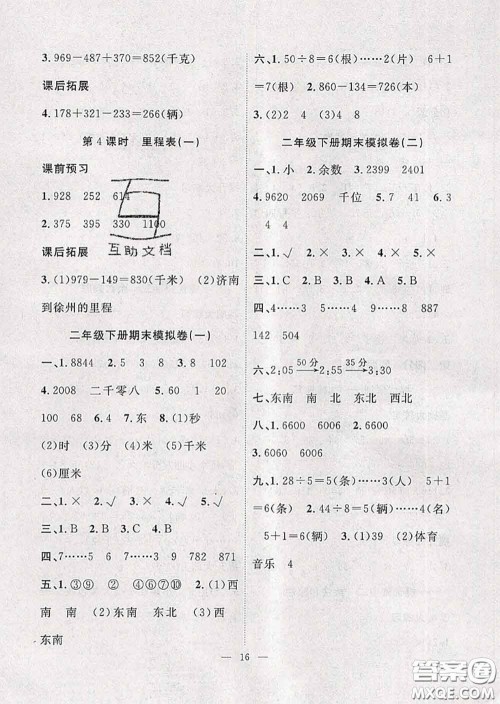 3.969－487＋370＝852(千克)
课后拓展
4.178＋321－233＝266(辆)
第4课时 里程表(一)
课前预习
1.928 252 614
2.375 395 330 1100
互助文档
课后拓展
3.(1)979－149＝830(千米) (2)济南
到徐州的里程
二年级下册期末模拟卷(一)
一、1.8844 2.5 3 8 3.8 102
4.2008 二千零八 5.60 1 20
100 68 6.2 7.东 8.(1)秒
(2)时 (3)分 (4)米 (5)千米
(6)厘米
二、1.√ 2.× 3.× 4.× 5.√
三、1.B 2.B 3.A 4.B
四、7……5 7……3 9 782 871
五、1.③⑨ ② ④⑥⑦⑩ 2.(1)西
南 南 (2)东南 东北 (3)西
东南
六、1.50÷8＝6(根)……2(片) 6＋1
＝7(根) 2.860－134＝726(本)
3.(2)2 4 (3)4 8
二年级下册期末模拟卷(二)
一、1.小 2.余数 3.2399 2401
4.9620 2069 千位 5.7 41 6.3
4 4
二、1.× 2.× 3.√ 4.√
三、1.C 2.A 3.B 4.B 5.C
四、4……3 8……4 9 8 887
142 504
六、2:05 50分→2:55 35分→3:30
七、东南 南 北 东北 西北
八、1.6600 6006 2.6600
3.6060 6006
九、1.28÷5＝5(条)……3(人) 5＋1
＝6(条) 2.44÷8＝5(辆)……4(名)
5＋1＝6(辆) 3.(1)39 (2)体育
音乐 4
16
答案圈
MXQE.COM